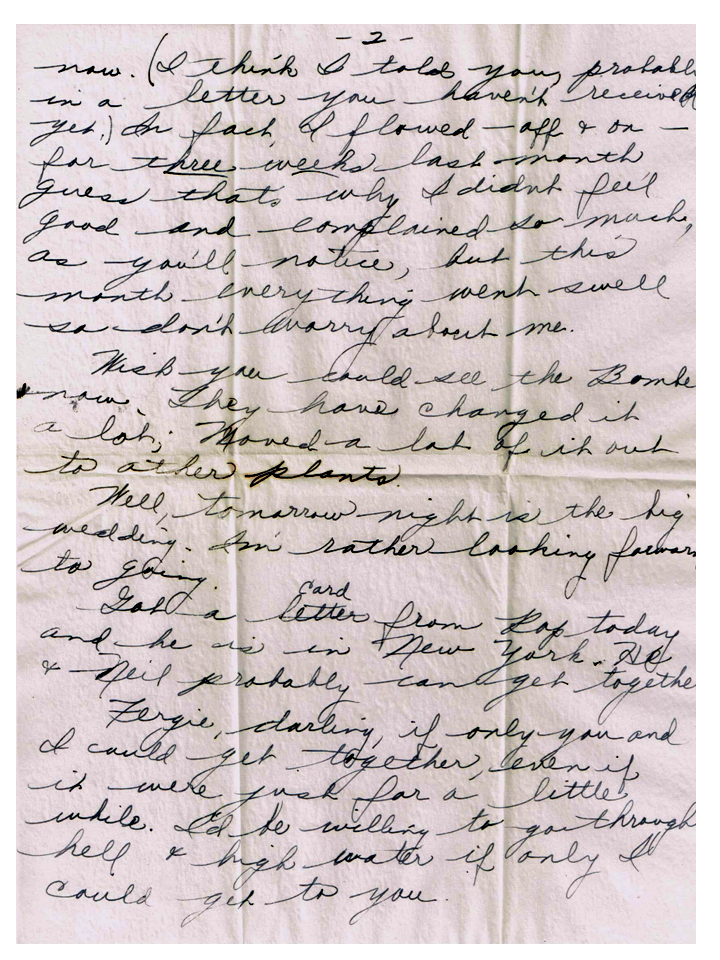 - 2 -
now. (I think I told you, probabl
in a letter you haven't received
yet.) In fact, I flowed - off & on -
for three weeks last month
guess thats why I didnt feel
good and complained so much,
as you'll notice, but this
month everything went swell
so don't worry about me.
Wish you could see the Bombe
now. They have changed it
a lot; Moved a lot of it out
to other plants.
Well, tomorrow night is the big
wedding. I'm rather looking forwar
to going.
card
Got a letter from Rop today
and he is in New York. He
& Neil probably can get togethe
Fergie, darling, if only you and
I could get together, even if
it were just for a little
while. I'd be willing to go through
hell & high water if only I
could get to you.